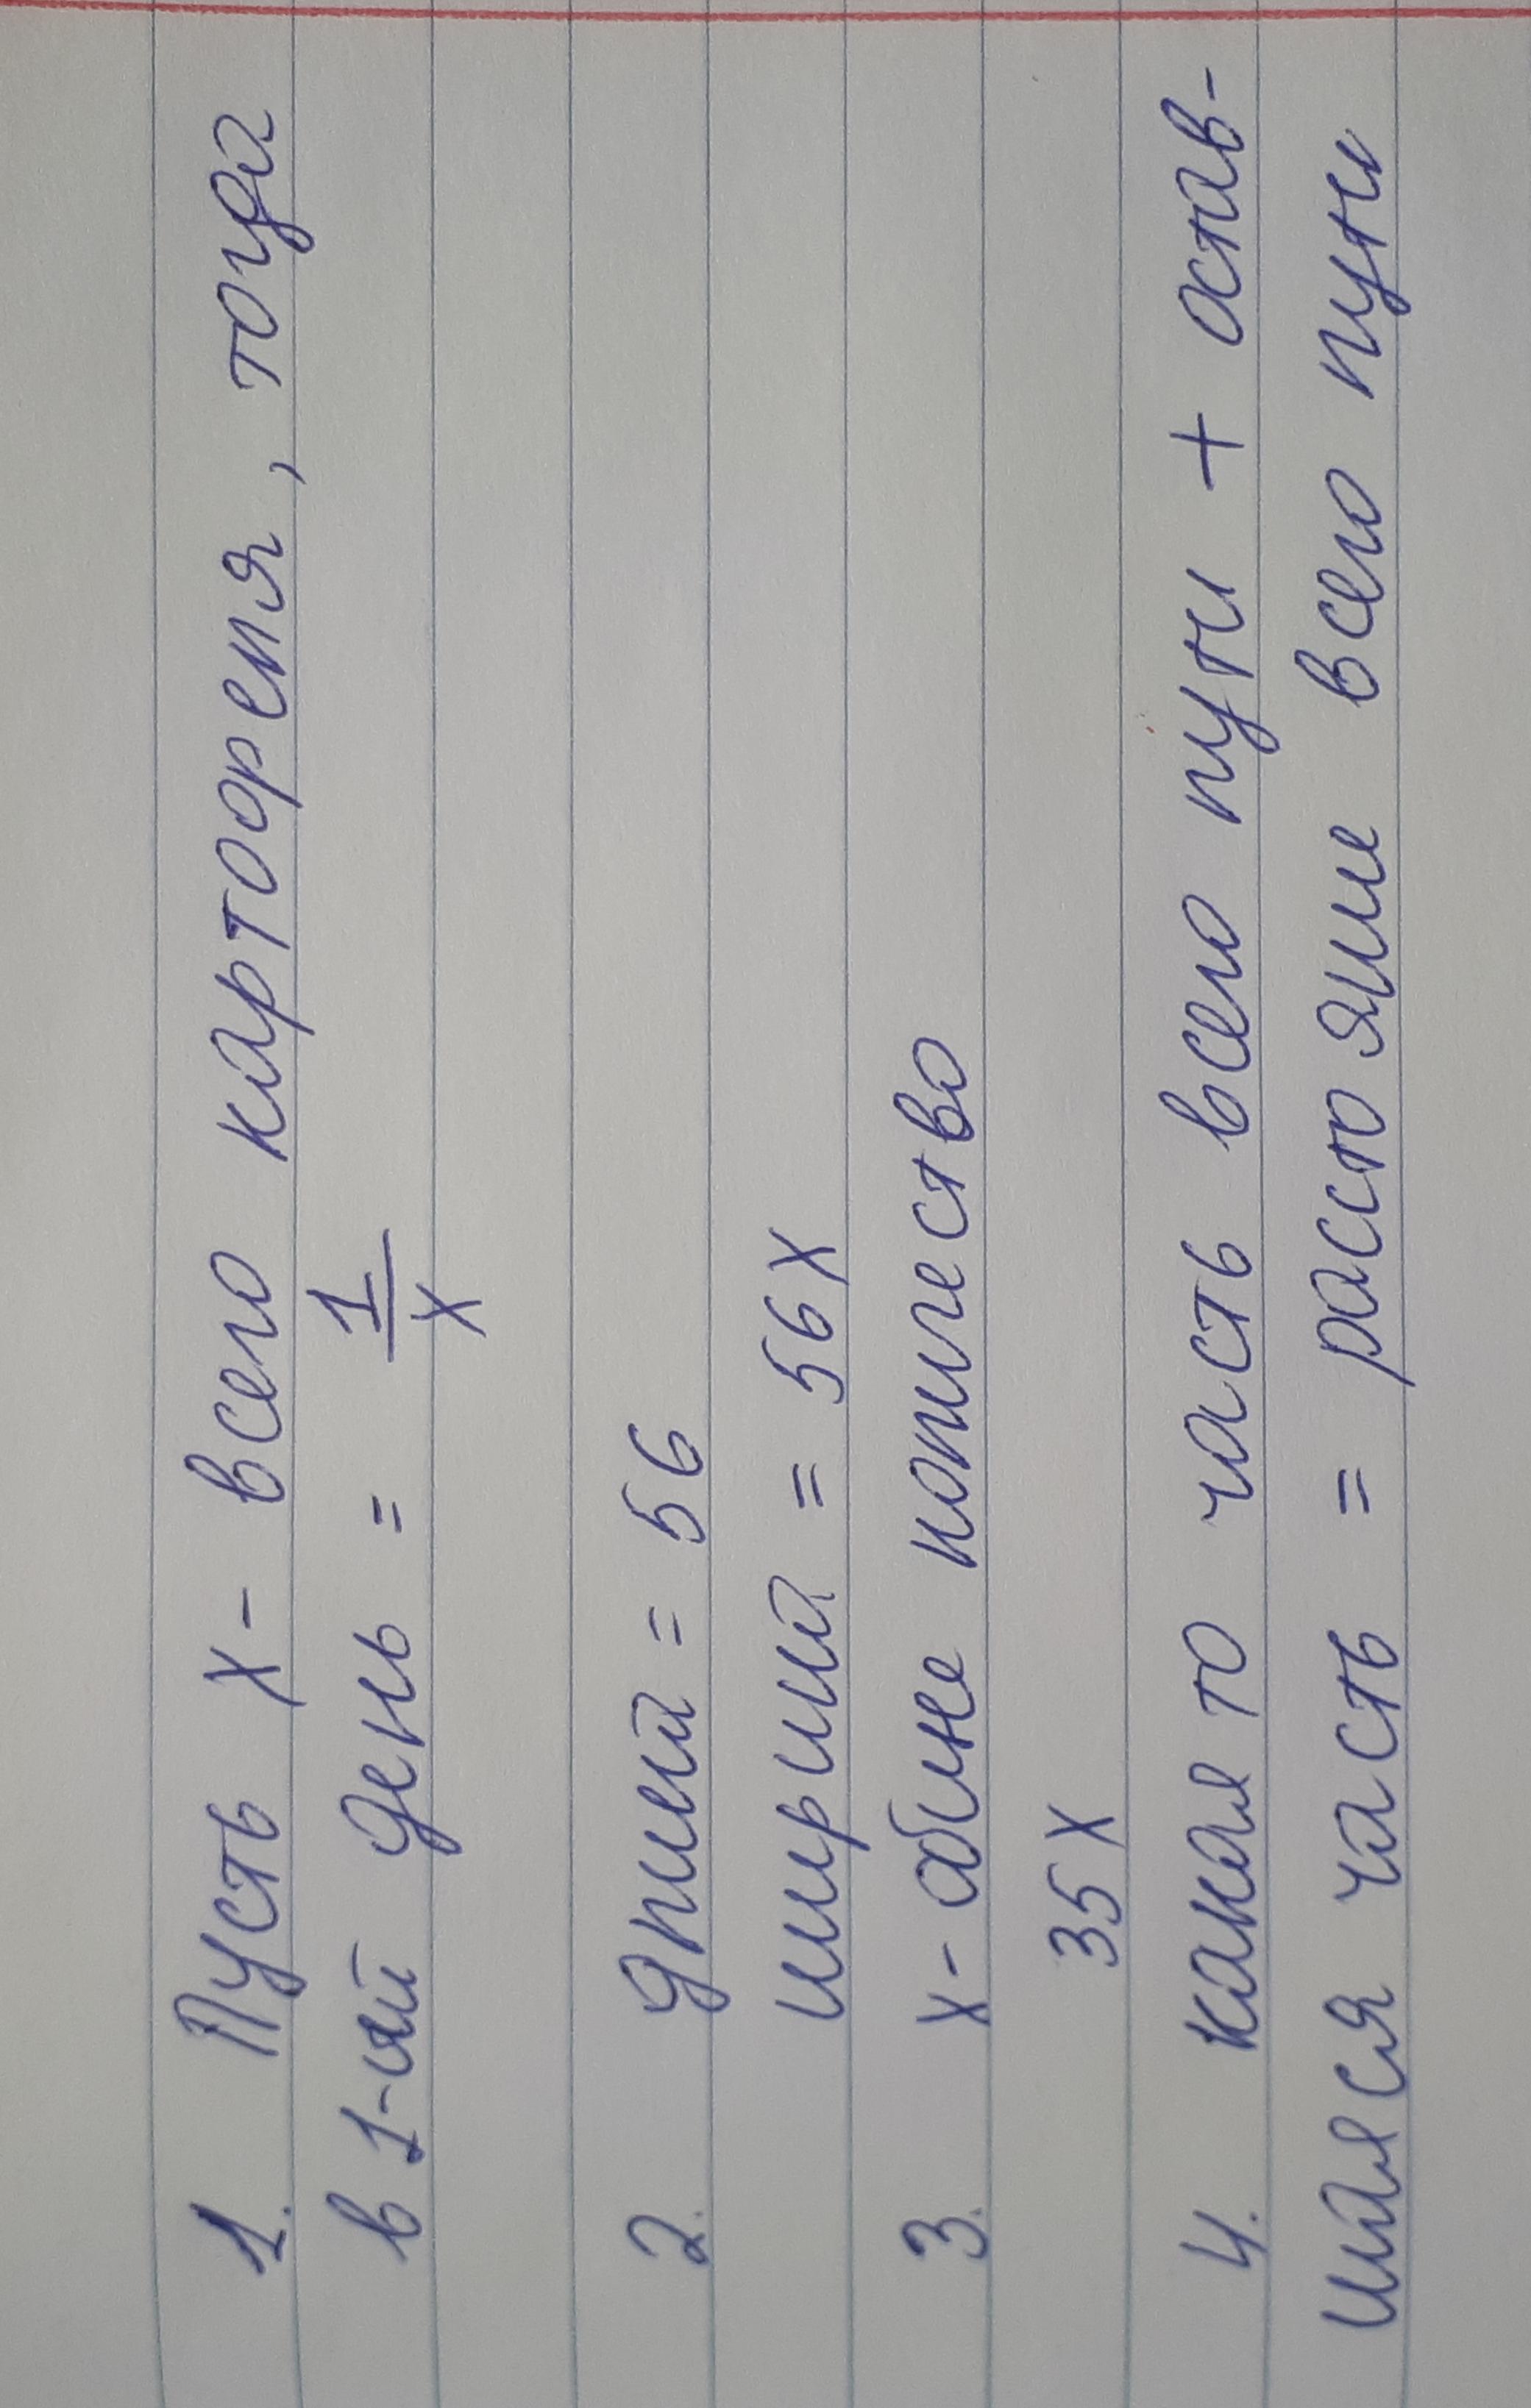 1. Пусть х - всего картофеля, тогда
в 1-ый день = 1/х
2. длина = 56
ширина = 56х
3. х - общее количество
35х
4. какая то часть всего пути + остав-
шаяся часть = расстояние всего пути